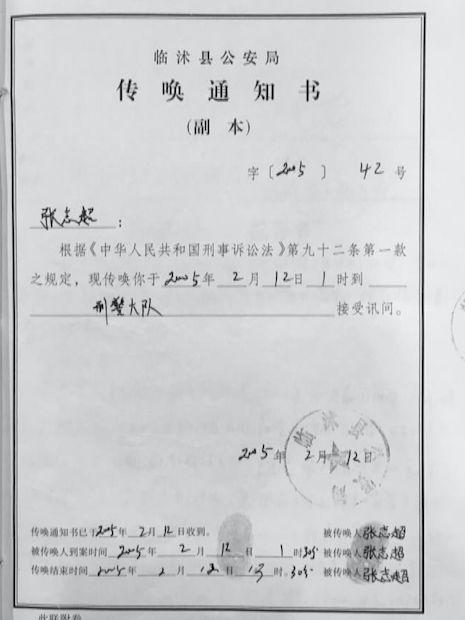 临沭县公安局
传唤通知书
（副本）
字〔2005〕 42 号
张志超：
根据《中华人民共和国刑事诉讼法》第九十二条第一款
之规定，现传唤你于2005年 2月12日 1时到
刑警大队 接受讯问。
临沭县公安局
2005年 2月12日
传唤通知书已于2005年 2月12日收到。 被传唤人张志超
被传唤人到案时间 2005年 2月 12日 1时30分 被传唤人张志超
传唤结束时间 2005年 2月 12日 时30分 被传唤人张志超
此联附卷